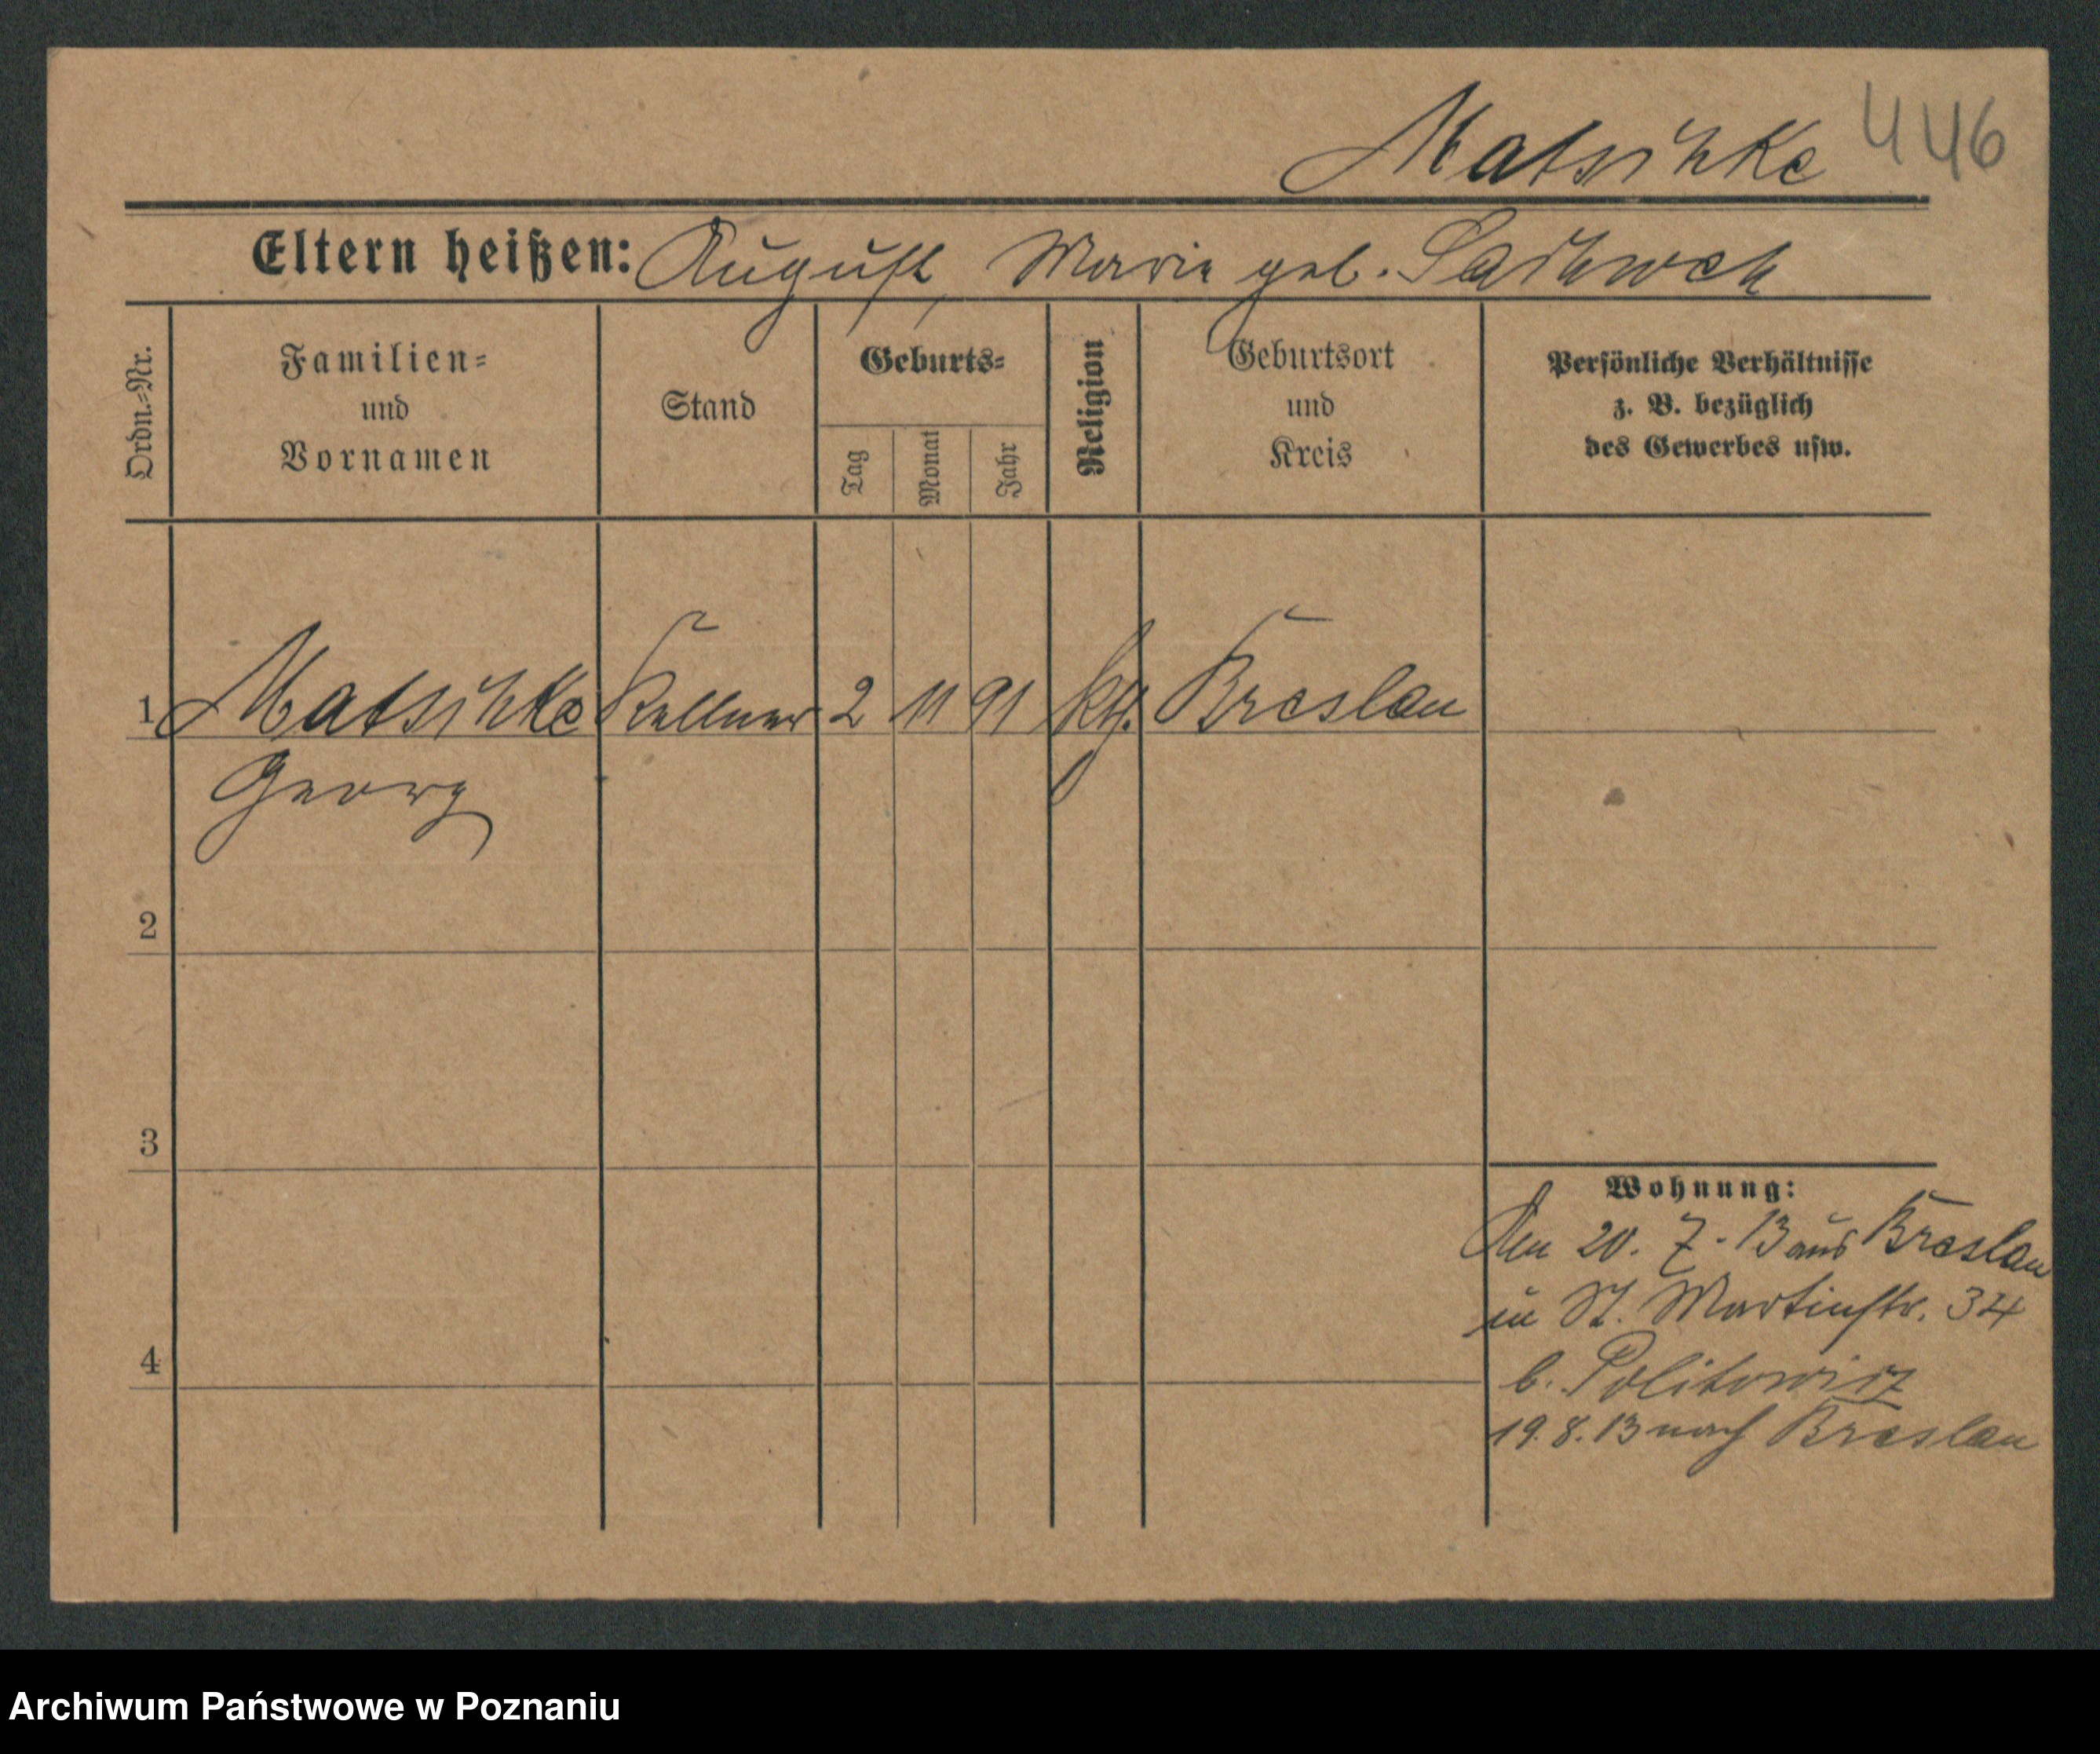 Matschke 446
Eltern heißen: August, Marie geb. Sachweh
Ordn.-Nr.
Familien-
und
Vornamen
Stand
Geburts-
Tag
Monat
Jahr
Religion
Geburtsort
und
Kreis
Persönliche Verhältnisse
z. B. bezüglich
des Gewerbes usw.
1 Matschke Kellner 2 11 91 kth. Breslau
Georg
2
3
4
Wohnung:
Am 20. 7. 13 aus Breslau
in St. Martinstr. 34
b. Politowicz
19. 8. 13 nach Breslau
Archiwum Państwowe w Poznaniu